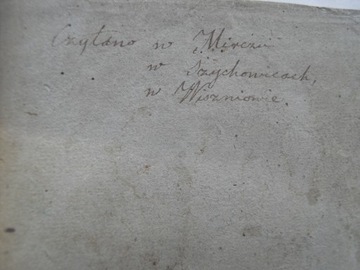 Czytano w Mirczu
w Szychowicach,
w Wiszniowie.